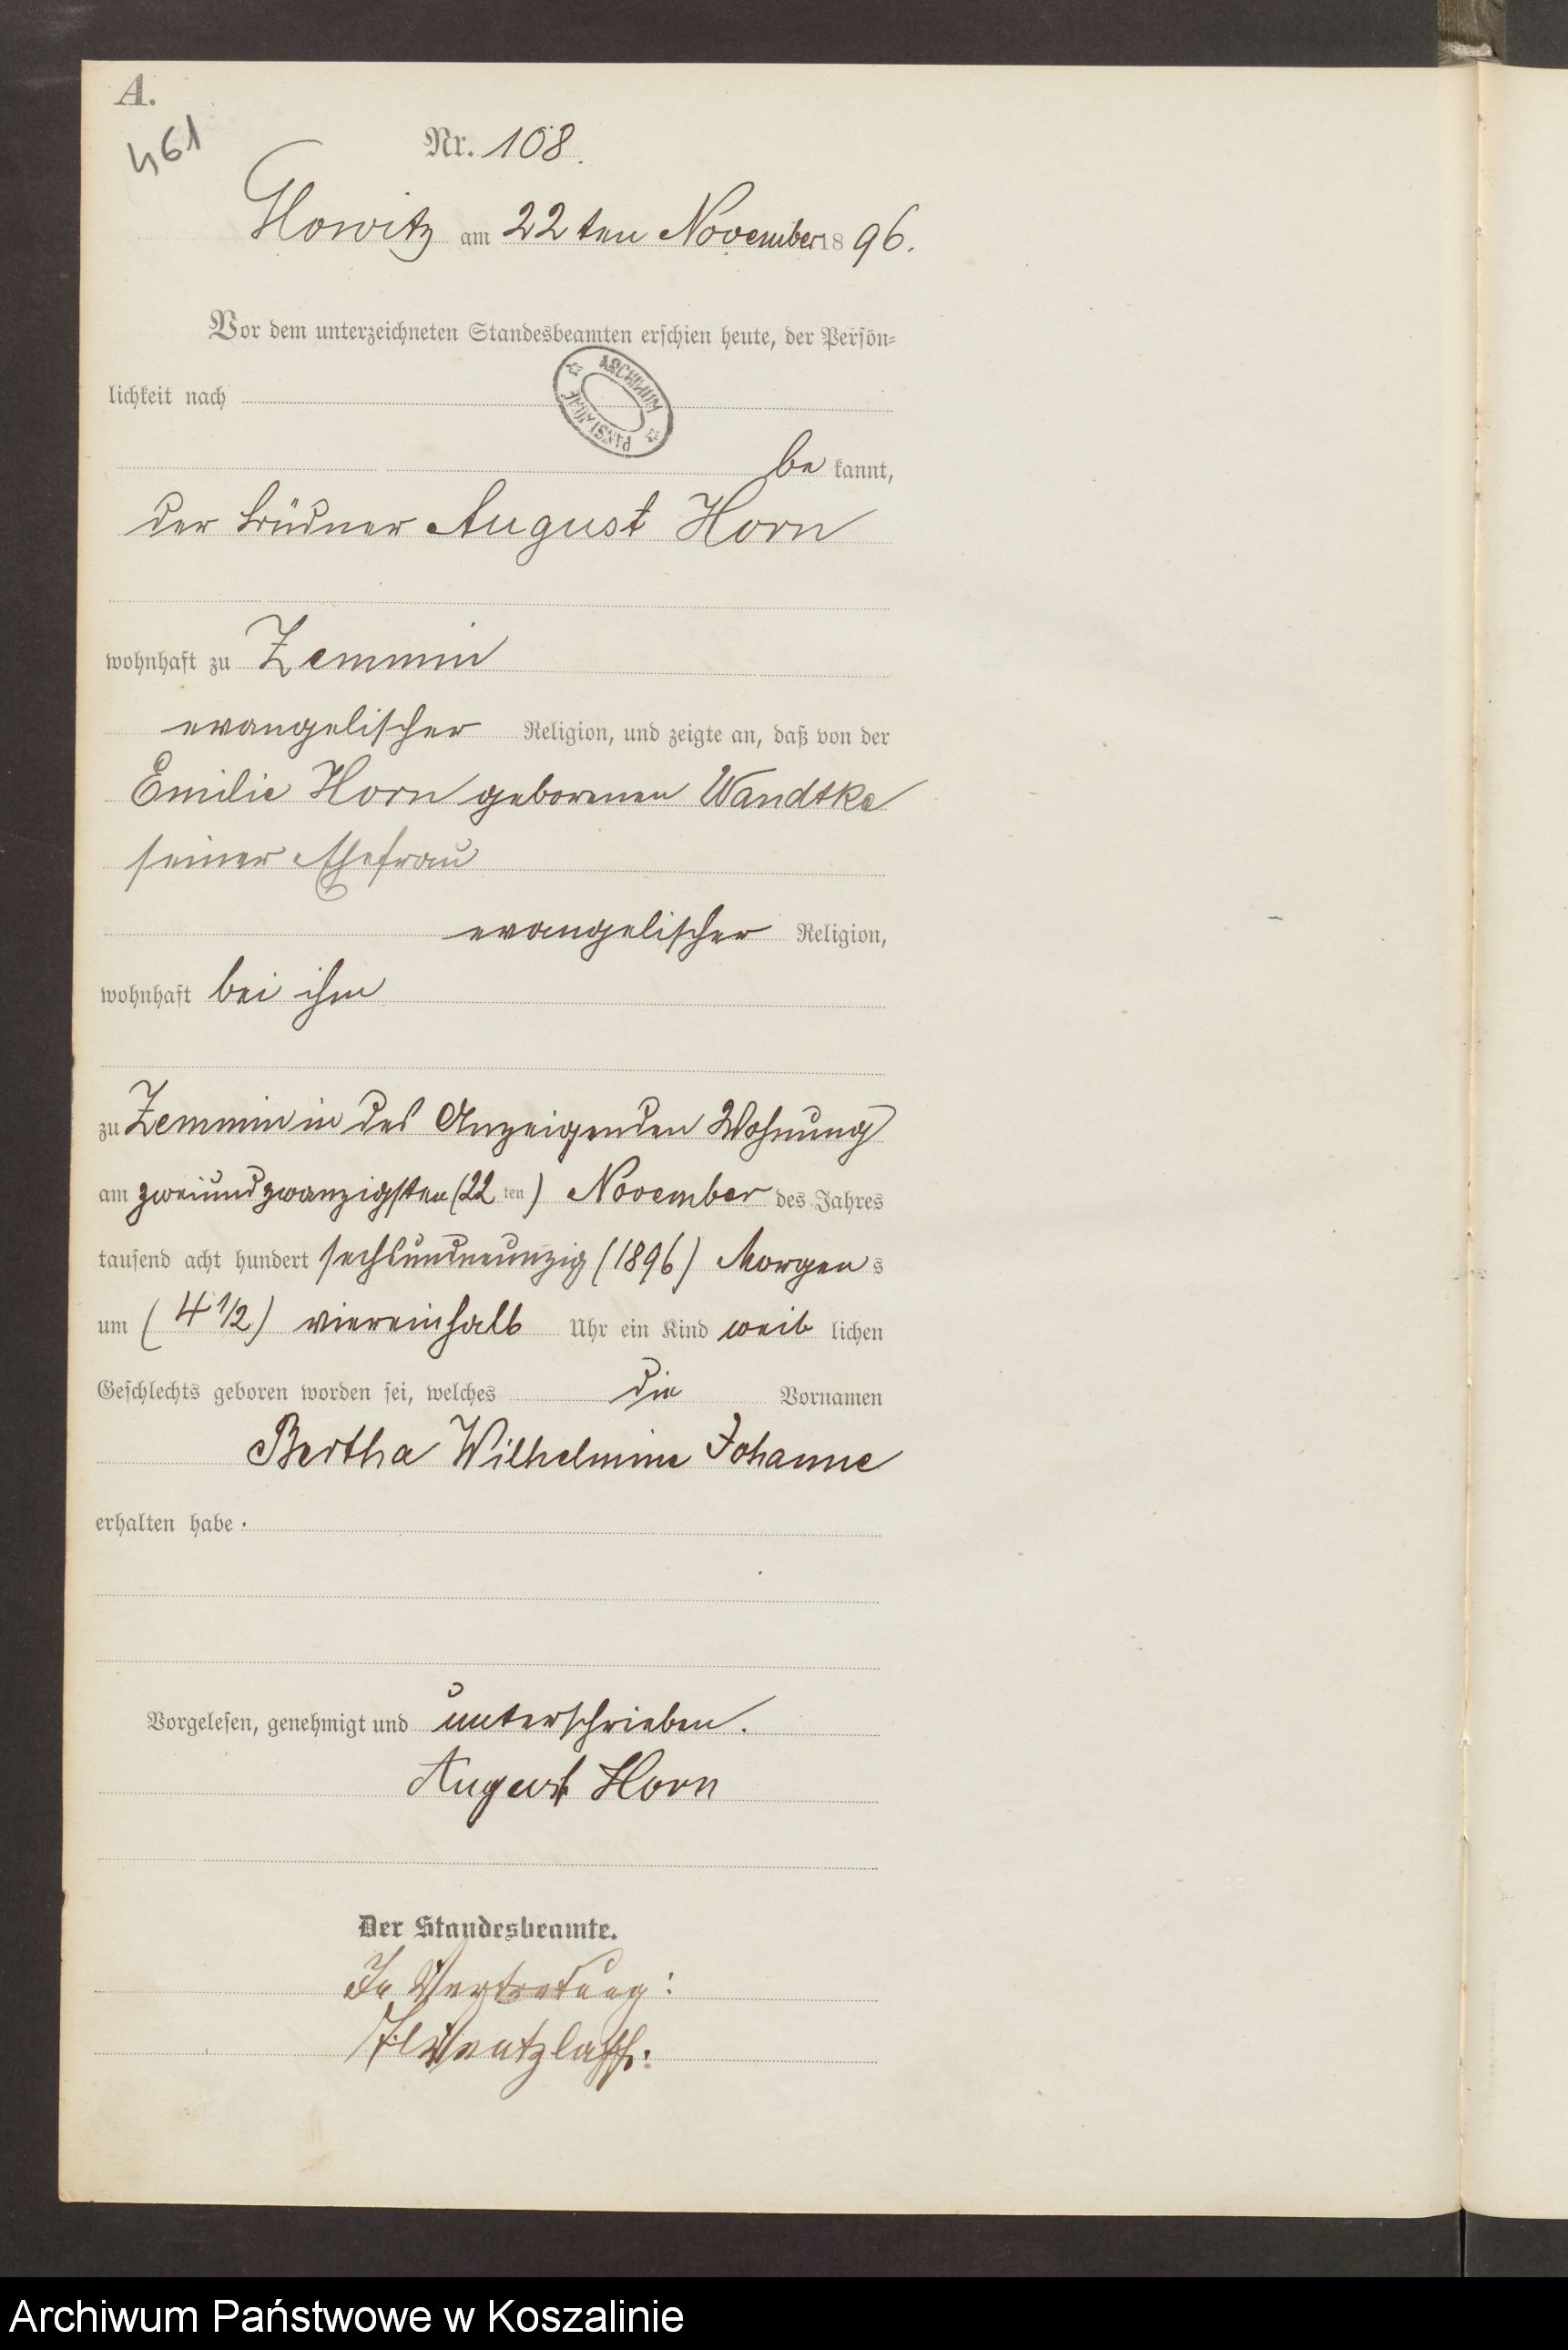 A.
461
Nr. 108.
Glowitz am 22ten November 1896.
Vor dem unterzeichneten Standesbeamten erschien heute, der Persön=
lichkeit nach
ARCHIWUM PAŃSTWOWE
be kannt,
der Büdner August Horn
wohnhaft zu Zemmin
evangelischer Religion, und zeigte an, daß von der
Emilie Horn geborenen Wandtke
seiner Ehefrau
evangelischer Religion,
wohnhaft bei ihm
zu Zemmin in des Anzeigenden Wohnung
am zweiundzwanzigsten (22 ten) November des Jahres
tausend acht hundert sechsundneunzig (1896) Morgens
um (4 1/2) viereinhalb Uhr ein Kind weib lichen
Geschlechts geboren worden sei, welches die Vornamen
Bertha Wilhelmine Johanne
erhalten habe.
Vorgelesen, genehmigt und unterschrieben.
August Horn
Der Standesbeamte.
In Vertretung:
Wentzlaff.
Archiwum Państwowe w Koszalinie